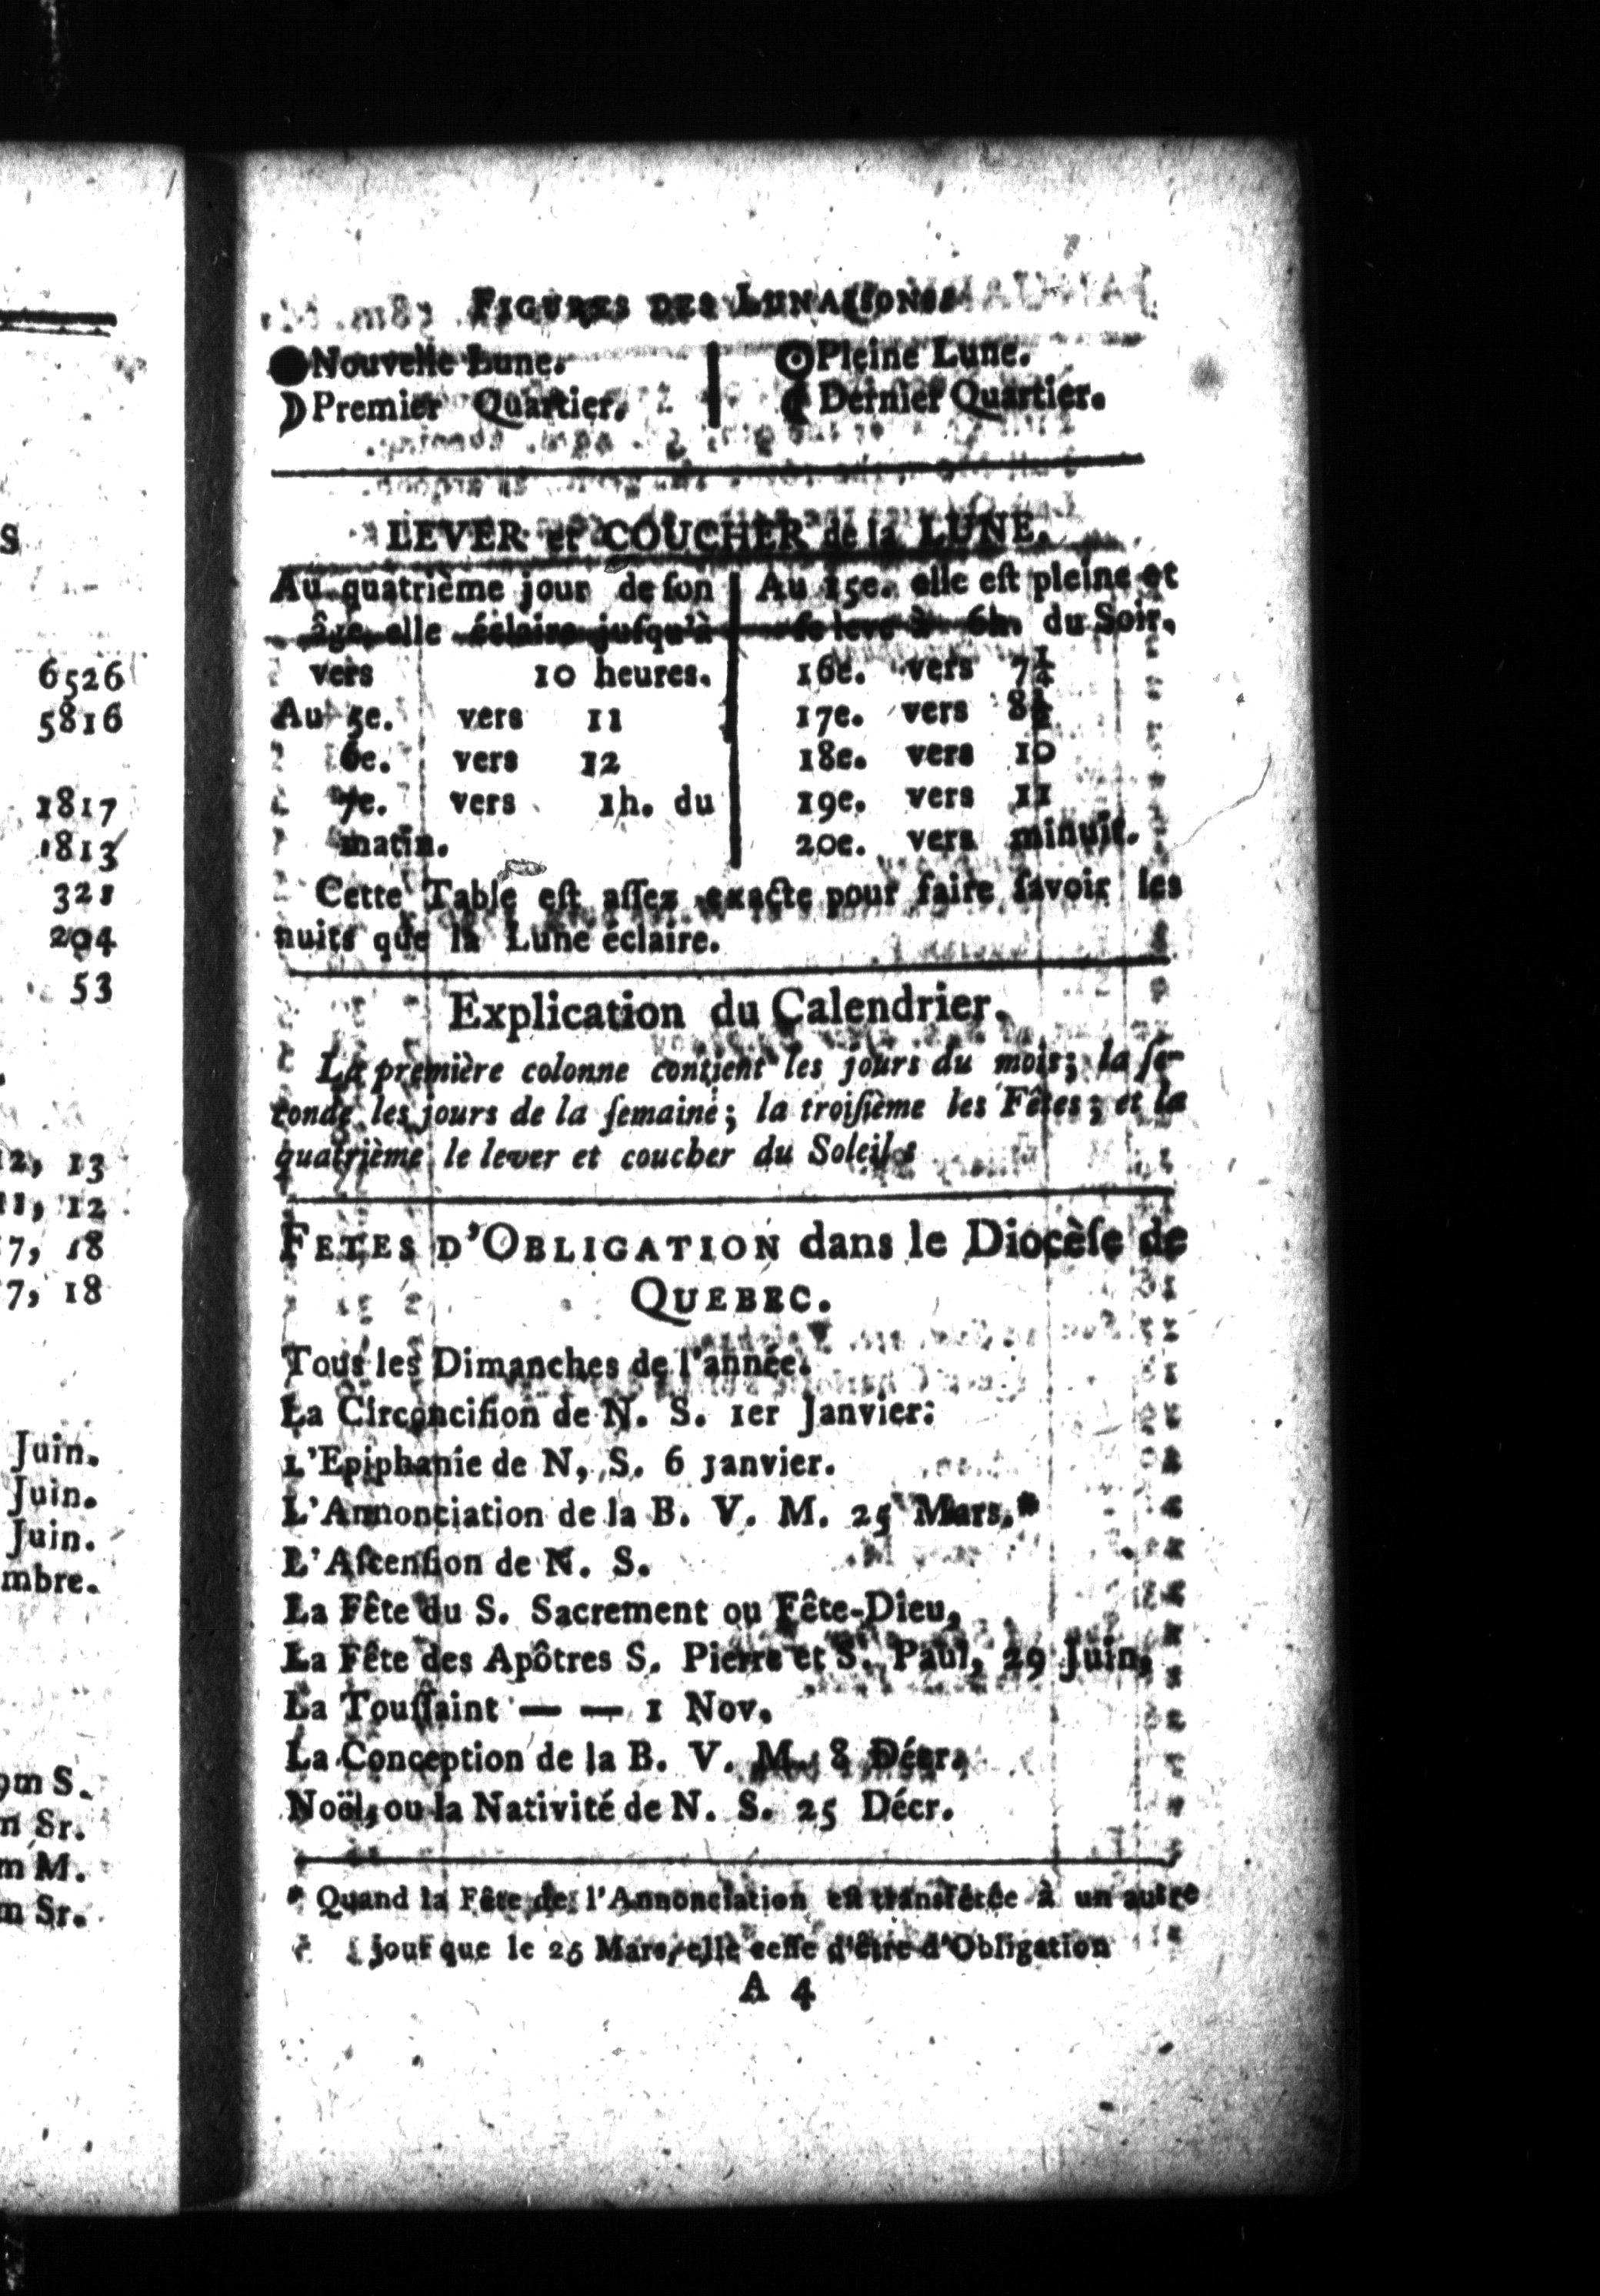 S
6526
5816
1817
1813
321
204
53
12, 13
11, 12
7, 18
7, 18
Juin.
Juin.
Juin.
mbre.
om S.
n Sr.
m M.
m Sr.
FIGURES DES LUNAISONS
●Nouvelle Lune.
☽Premier Quartier.
☉Pleine Lune.
☾Dernier Quartier.
LEVER et COUCHER de la LUNE.
Au quatrième jour de ſon
âge elle éclaire juſqu'à
vers 10 heures.
Au 5e. vers 11
6e. vers 12
7e. vers 1h. du
matin.
Au 15e. elle eſt pleine et
ſe leve à 6h. du Soir.
16e. vers 7¼
17e. vers 8½
18e. vers 10
19e. vers 11
20e. vers minuit.
Cette Table eſt aſſez exacte pour faire ſavoir les
nuits que la Lune éclaire.
Explication du Calendrier.
La première colonne contient les jours du mois; la ſe-
conde les jours de la ſemaine; la troiſième les Fêtes; et la
quatrième le lever et coucher du Soleil
FETES D'OBLIGATION dans le Diocèſe de
QUEBEC.
Tous les Dimanches de l'année.
La Circonciſion de N. S. 1er Janvier:
L'Epiphanie de N, S. 6 janvier.
L'Annonciation de la B. V. M. 25 Mars.*
L'Aſcenſion de N. S.
La Fête du S. Sacrement ou Fête-Dieu,
La Fête des Apôtres S. Pierre et S. Paul, 29 Juin,
La Touſſaint — — 1 Nov.
La Conception de la B. V. M. 8 Décr.
Noël, ou la Nativité de N. S. 25 Décr.
* Quand la Fête de l'Annonciation eſt transférée à un autre
jour que le 25 Mars, elle ceſſe d'être d'Obligation
A 4